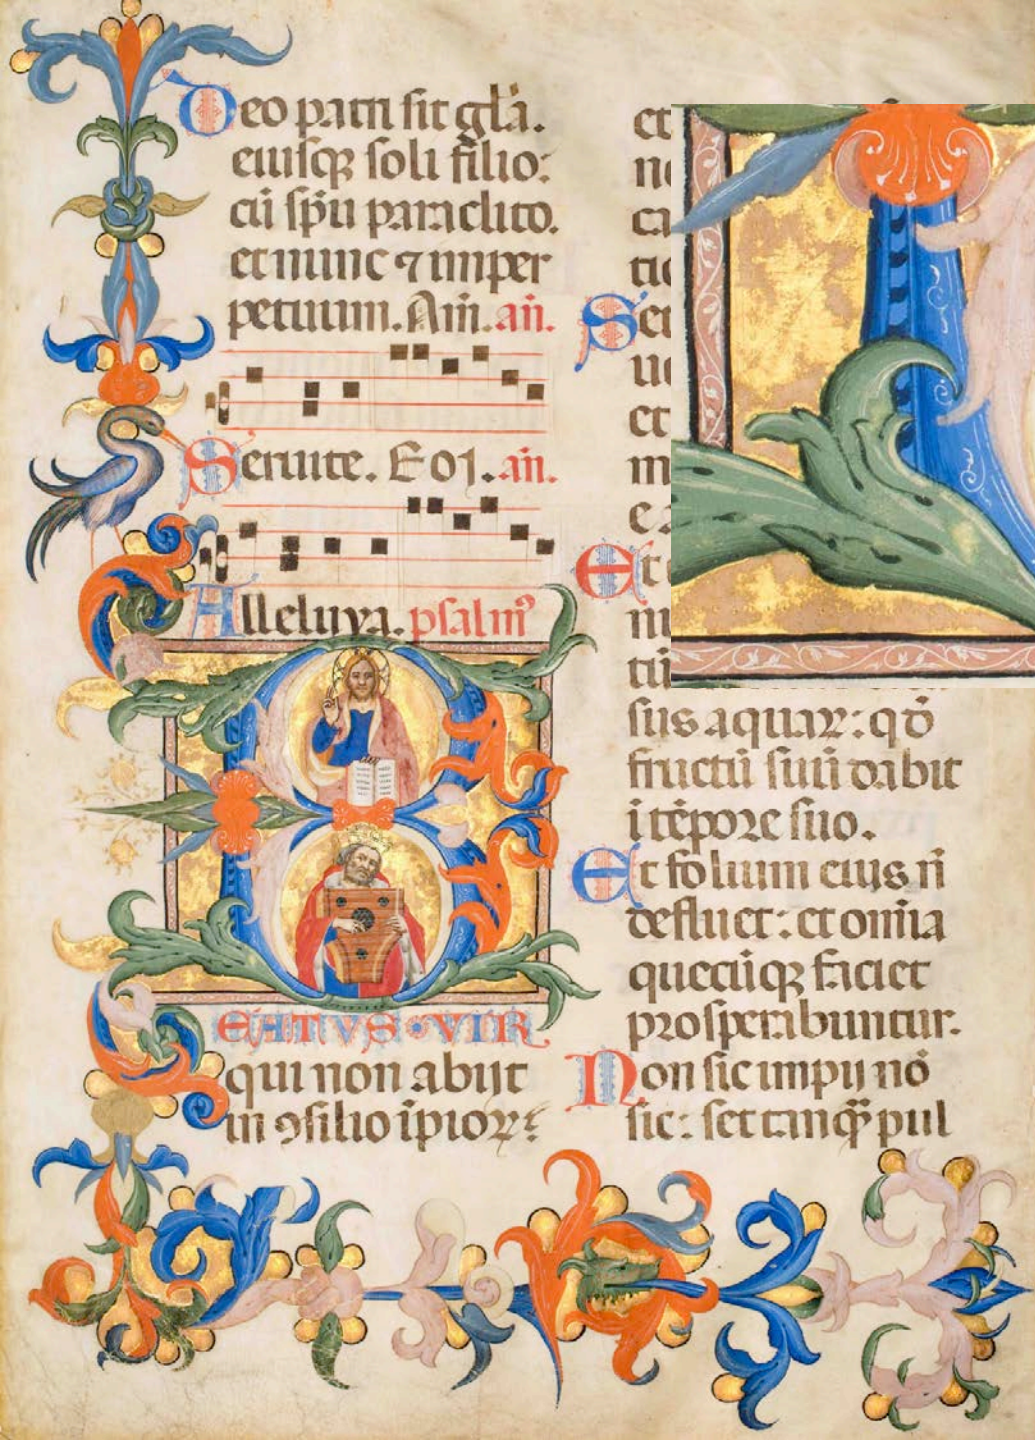 Deo patri sit gl̄a.
eiusq̄ꝫ soli filio:
cū sp̄u paraclito.
et nunc ⁊ imper
petuum. Am̄. an̄.
Seruite. E o ꝯ. an̄.
Alleluya. psalmꝰ
BEATVS · VIR
qui non abijt
in ꝯsilio īpioꝝ:
et
ue
et
Et
sus aquaꝝ: qđ
fructū suū dabit
ī tēpore suo.
Et folium eius nō
defluet: et om̄ia
quecūqꝫ faciet
prosperabuntur.
Non sic impij nō
sic: set tanqꝫ pul